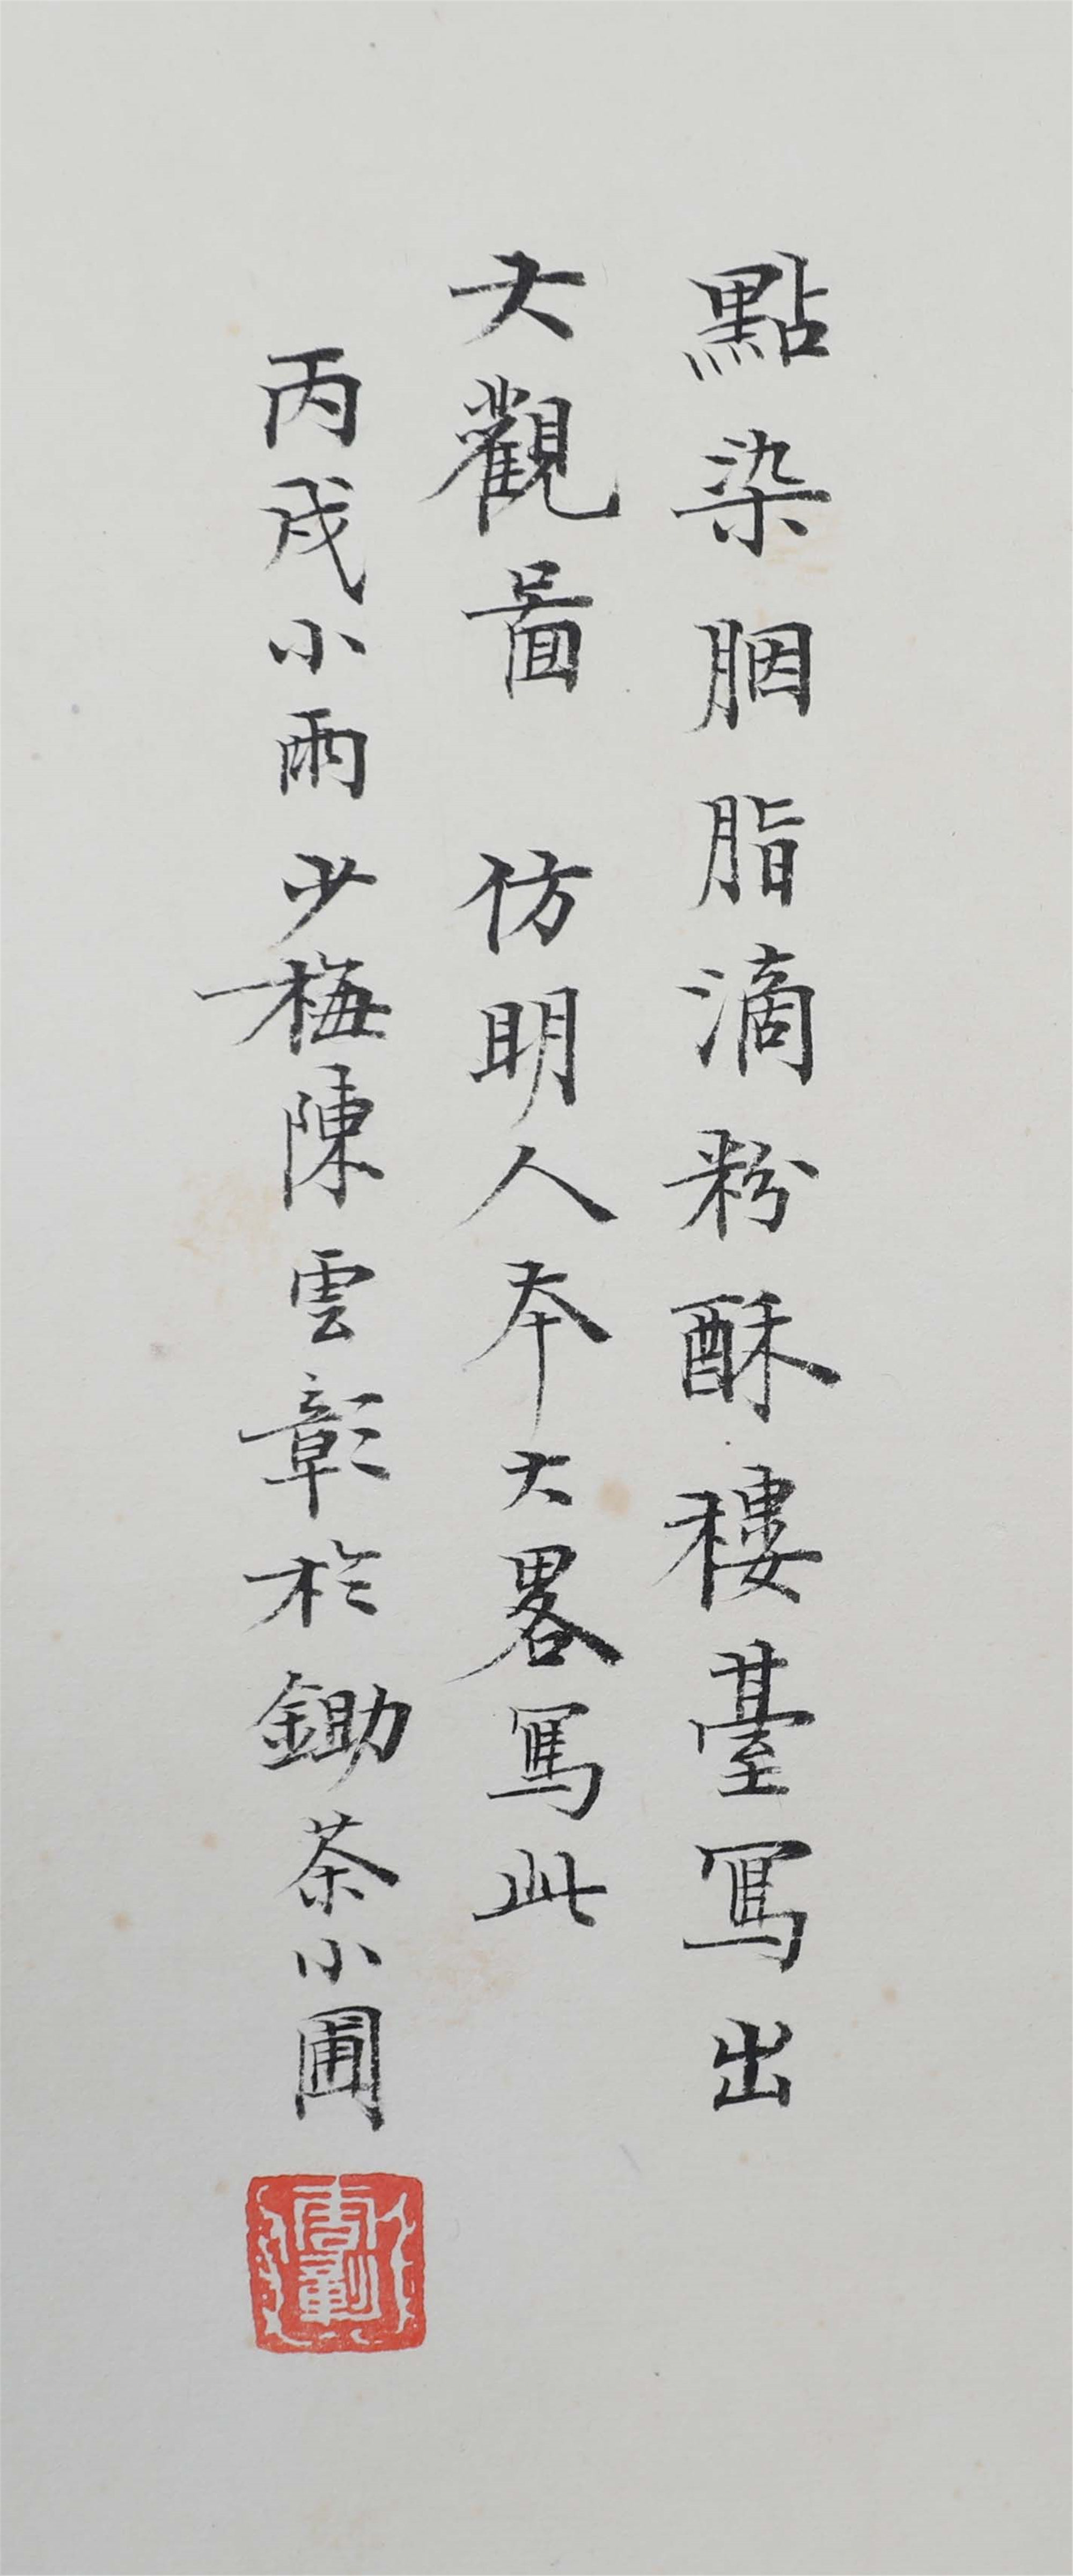 點染胭脂滴粉酥樓臺寫出
大觀啚仿明人本大畧寫此
丙戌小雨少梅陳雲彰於鋤茶小圃
雲彰